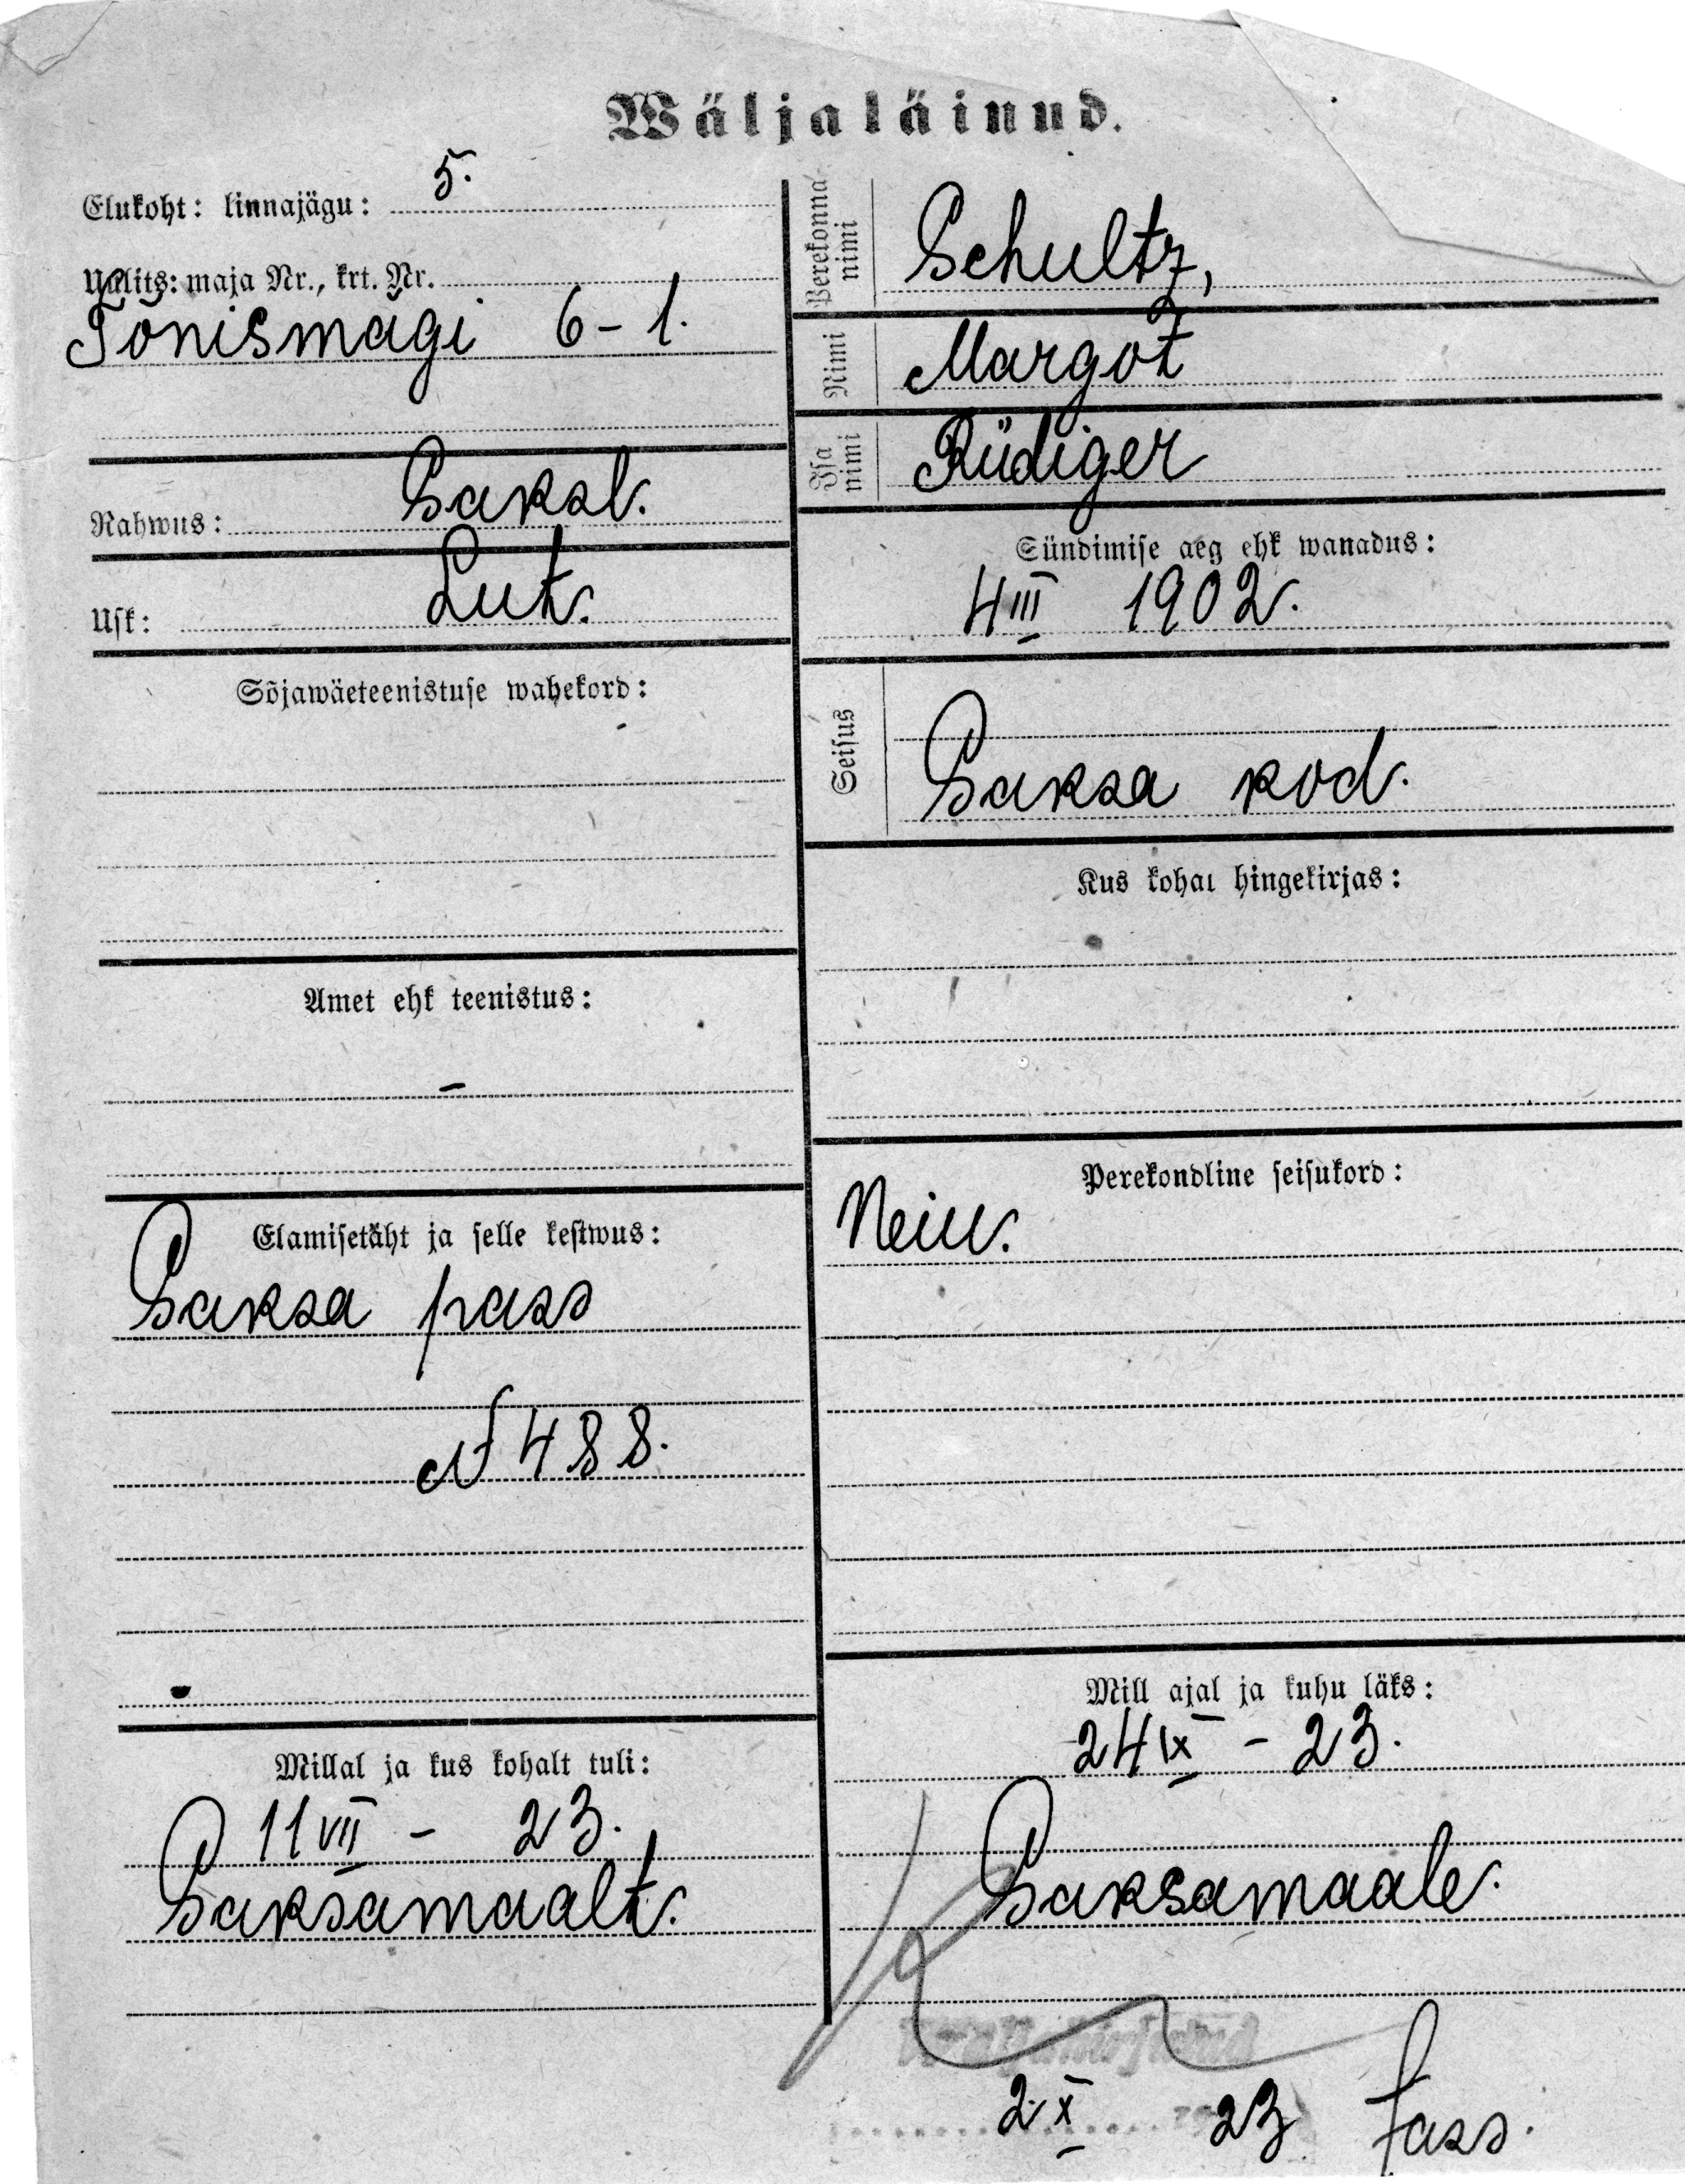 Wäljaläinud.
Elukoht: linnajägu: 5.
Uulits: maja Nr., krt. Nr.
Tõnismägi 6-1.
Rahwus: Saksl.
Usk: Lut.
Sõjawäeteenistuse wahekord:
Amet ehk teenistus:
–
Elamisetäht ja selle kestwus:
Saksa pass
N 488.
Millal ja kus kohalt tuli:
11 VII – 23.
Saksamaalt.
Perekonna nimi Schultz,
Nimi Margot
Isa nimi Rüdiger
Sündimise aeg ehk wanadus:
4 III 1902.
Seisus
Saksa kod.
Kus kohal hingekirjas:
Perekondline seisukord:
Neiu.
Mill ajal ja kuhu läks:
24 IX – 23.
Saksamaale.
2 X 23